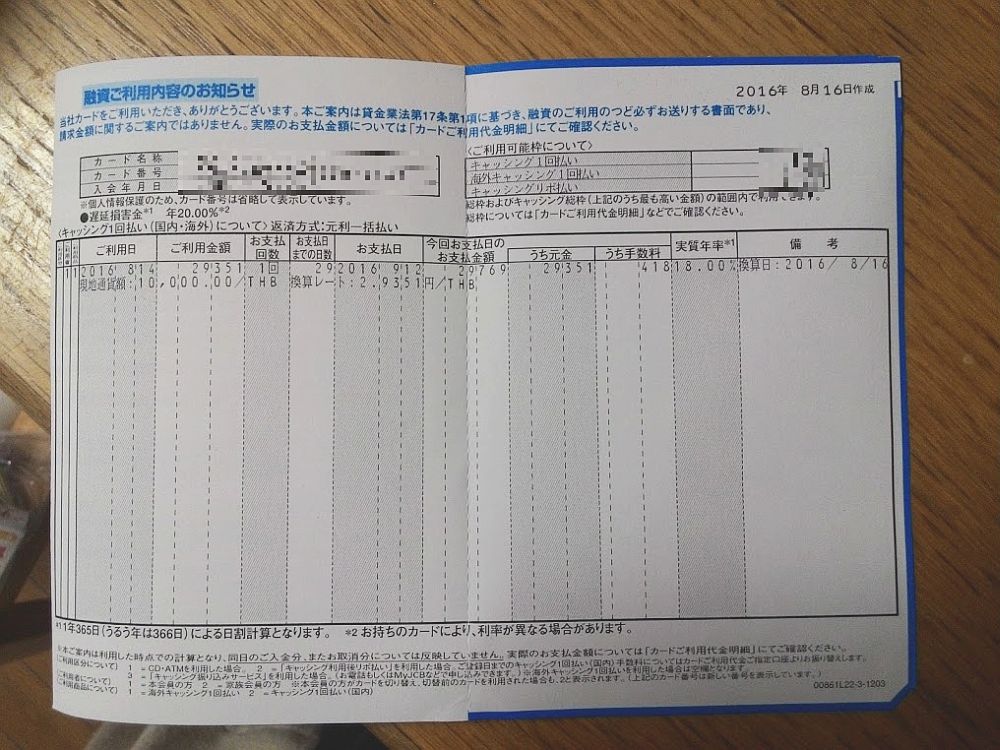 融資ご利用内容のお知らせ
2016年 8月16日作成
当社カードをご利用いただき、ありがとうございます。本ご案内は貸金業法第17条第1項に基づき、融資のご利用のつど必ずお送りする書面であり、
請求金額に関するご案内ではありません。実際のお支払金額については「カードご利用代金明細」にてご確認ください。
カード名称
カード番号
入会年月日
〈ご利用可能枠について〉
キャッシング1回払い
海外キャッシング1回払い
キャッシングリボ払い
※個人情報保護のため、カード番号は省略して表示しています。
総枠およびキャッシング総枠(上記のうち最も高い金額)の範囲内で利用できます。
●遅延損害金*1 年20.00%*2
総枠については「カードご利用代金明細」などでご確認ください。
〈キャッシング1回払い(国内・海外)について〉返済方式:元利一括払い
ご利用日 ご利用金額 お支払回数 お支払日までの日数 お支払日 今回お支払日のお支払金額 うち元金 うち手数料 実質年率*1 備考
1 1 2016 8 14 29351 1回 29 2016 9 12 29769 29351 418 18.00% 換算日:2016/ 8/16
現地通貨額:10,000.00/THB 換算レート:2.9351円/THB
*1 1年365日(うるう年は366日)による日割計算となります。 *2 お持ちのカードにより、利率が異なる場合があります。
※本ご案内は利用した時点での計算となり、同日のご入金分、またお取消分については反映していません。実際のお支払金額については「カードご利用代金明細」にてご確認ください。
〈ご利用区分について〉 1 = CD・ATMを利用した場合。 2 = 「キャッシング利用後リボ払い」を利用した場合。ご登録日までのキャッシング1回払い(国内)手数料についてはカードご利用代金ご指定口座よりお振り替えします。
3 = 「キャッシング振り込みサービス」を利用した場合。(お電話もしくはMyJCBなどで申し込みできます。)※海外キャッシング1回払いを利用した場合は空欄となります。
〈ご利用者について〉 1 = 本会員の方 2 = 家族会員の方 ※本会員の方がカードを切り替え、切替前のカードを利用された場合も、2と表示されます。(上記のカード番号は新しい番号を表示しています。)
〈ご利用商品について〉 1 = 海外キャッシング1回払い 2 = キャッシング1回払い(国内)
00851L22-3-1203